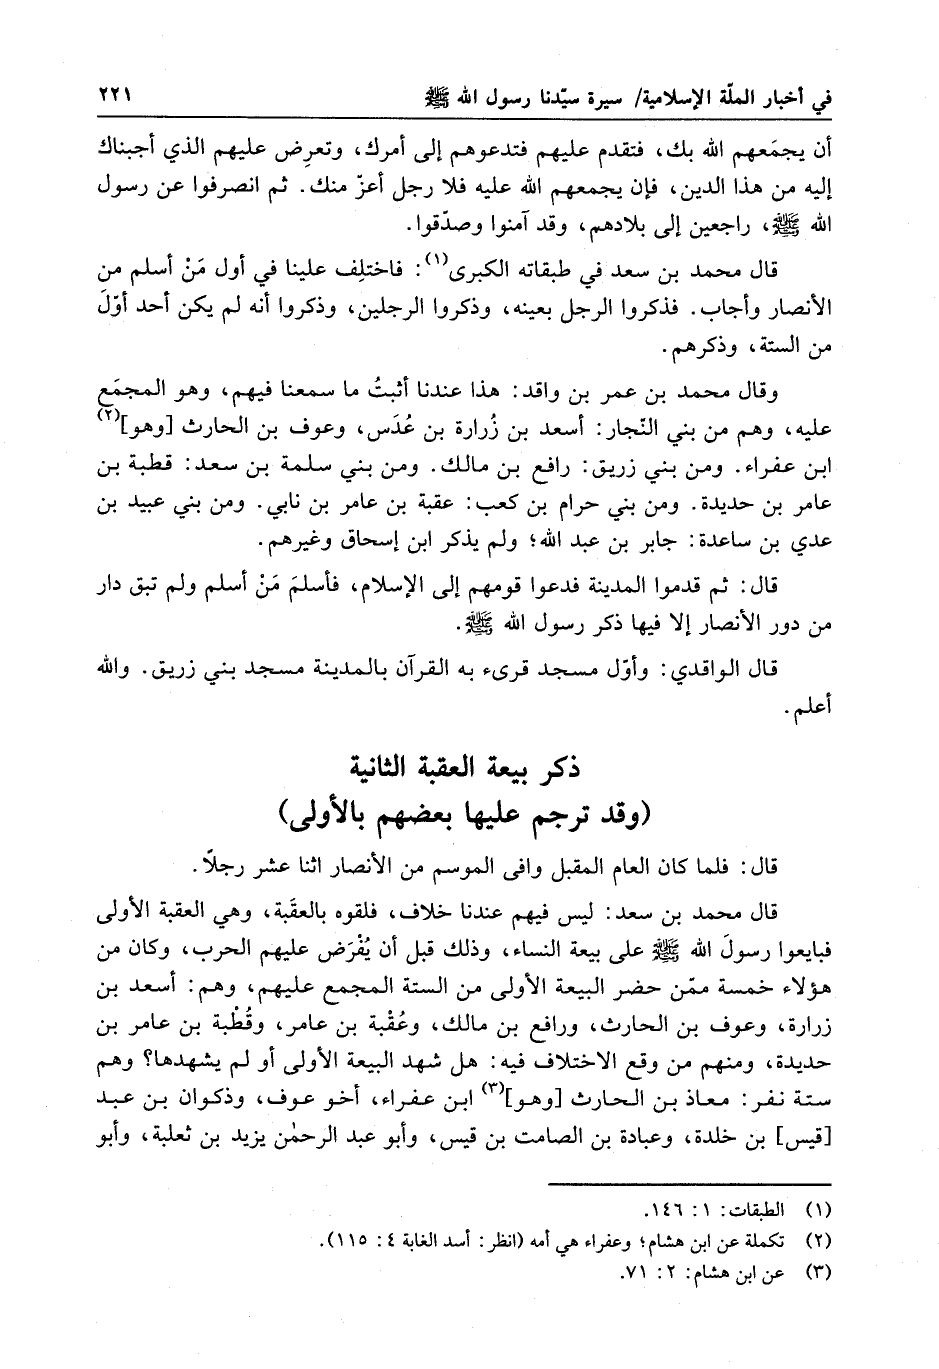 في أخبار الملّة الإسلامية/ سيرة سيّدنا رسول الله ﷺ ٢٢١
أن يجمَعهم الله بك، فتقدم عليهم فتدعوهم إلى أمرك، وتعرِض عليهم الذي أجبناك
إليه من هذا الدين، فإن يجمعهم الله عليه فلا رجل أعزّ منك. ثم انصرفوا عن رسول
الله ﷺ، راجعين إلى بلادهم، وقد آمنوا وصدّقوا.
قال محمد بن سعد في طبقاته الكبرى(١): فاختلِف علينا في أول مَنْ أسلم من
الأنصار وأجاب. فذكروا الرجل بعينه، وذكروا الرجلين، وذكروا أنه لم يكن أحد أوّلَ
من الستة، وذكرهم.
وقال محمد بن عمر بن واقد: هذا عندنا أثبتُ ما سمعنا فيهم، وهو المجمَع
عليه، وهم من بني النّجار: أسعد بن زُرارة بن عُدَس، وعوف بن الحارث [وهو](٢)
ابن عفراء. ومن بني زريق: رافع بن مالك. ومن بني سلمة بن سعد: قطبة بن
عامر بن حديدة. ومن بني حرام بن كعب: عقبة بن عامر بن نابي. ومن بني عبيد بن
عدي بن ساعدة: جابر بن عبد الله؛ ولم يذكر ابن إسحاق وغيرهم.
قال: ثم قدموا المدينة فدعوا قومهم إلى الإسلام، فأسلمَ مَنْ أسلم ولم تبق دار
من دور الأنصار إلا فيها ذكر رسول الله ﷺ.
قال الواقدي: وأوّل مسجد قرىء به القرآن بالمدينة مسجد بني زريق. والله
أعلم.
ذكر بيعة العقبة الثانية
(وقد ترجم عليها بعضهم بالأولى)
قال: فلما كان العام المقبل وافى الموسم من الأنصار اثنا عشر رجلاً.
قال محمد بن سعد: ليس فيهم عندنا خلاف، فلقوه بالعقَبة، وهي العقبة الأولى
فبايعوا رسولَ الله ﷺ على بيعة النساء، وذلك قبل أن يُفْرَض عليهم الحرب، وكان من
هؤلاء خمسة ممّن حضر البيعة الأولى من الستة المجمع عليهم، وهم: أسعد بن
زرارة، وعوف بن الحارث، ورافع بن مالك، وعُقْبة بن عامر، وقُطْبة بن عامر بن
حديدة، ومنهم من وقع الاختلاف فيه: هل شهد البيعة الأولى أو لم يشهدها؟ وهم
ستة نفر: معاذ بن الحارث [وهو](٣) ابن عفراء، أخو عوف، وذكوان بن عبد
[قيس] بن خلدة، وعبادة بن الصامت بن قيس، وأبو عبد الرحمٰن يزيد بن ثعلبة، وأبو
(١) الطبقات: ١ : ١٤٦.
(٢) تكملة عن ابن هشام؛ وعفراء هي أمه (انظر: أسد الغابة ٤ : ١١٥).
(٣) عن ابن هشام: ٢ : ٧١.